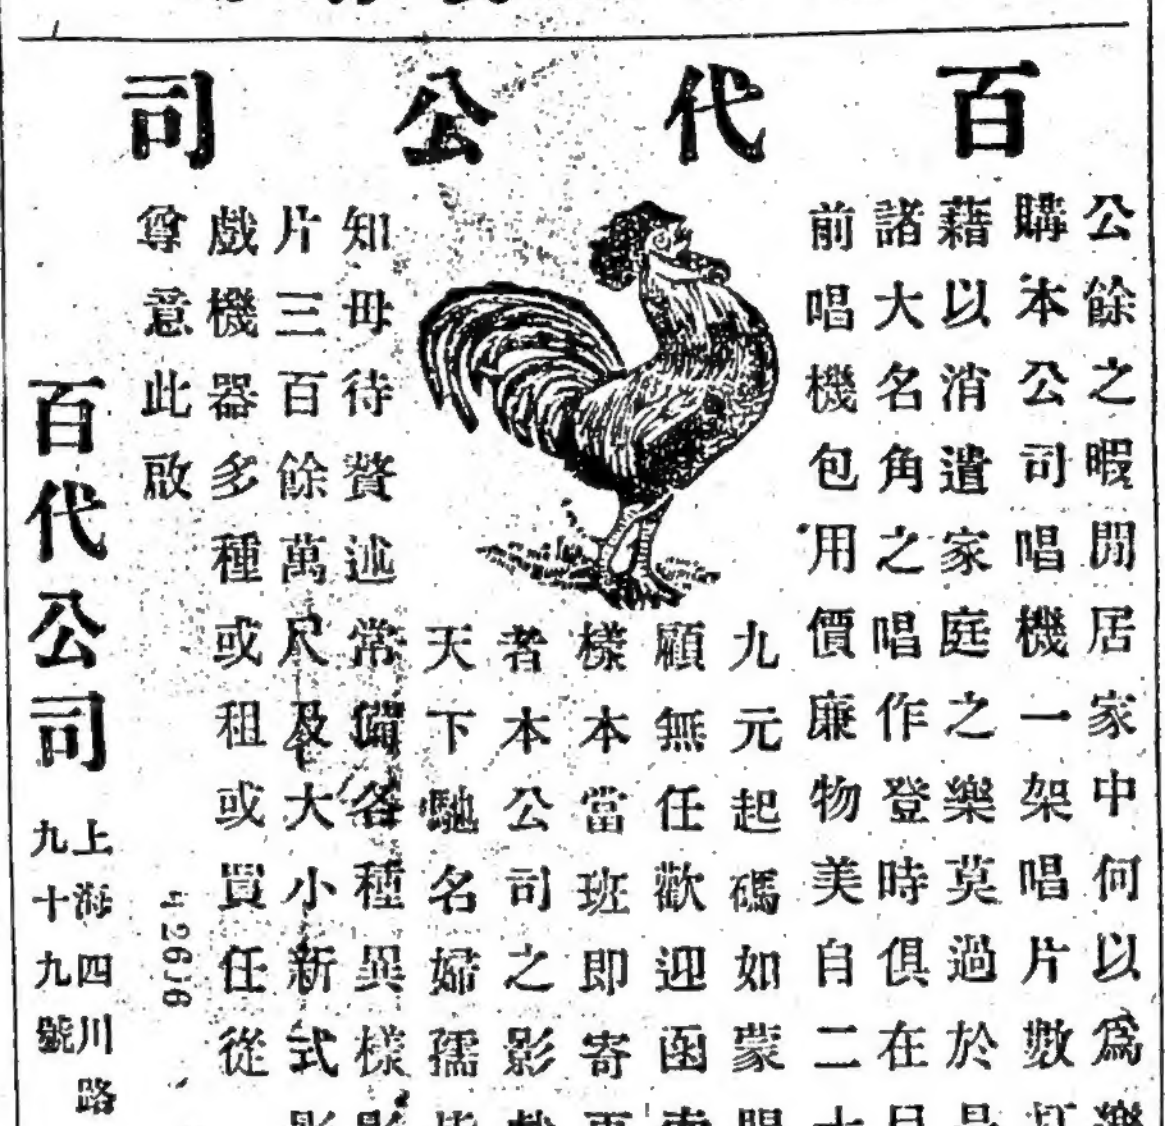 百代公司
公餘之暇閒居家中何以爲樂
購本公司唱機一架唱片數打
藉以消遣家庭之樂莫過於是
諸大名角之唱作登時俱在目
前唱機包用價廉物美自二十
九元起碼如蒙賜
顧無任歡迎函索
樣本當班即寄再
者本公司之影戲
天下馳名婦孺皆
知毋待贅述常備各種異樣影
片三百餘萬尺及大小新式影
戲機器多種或租或買任從
尊意此啟
百代公司
上海四川路
九十九號